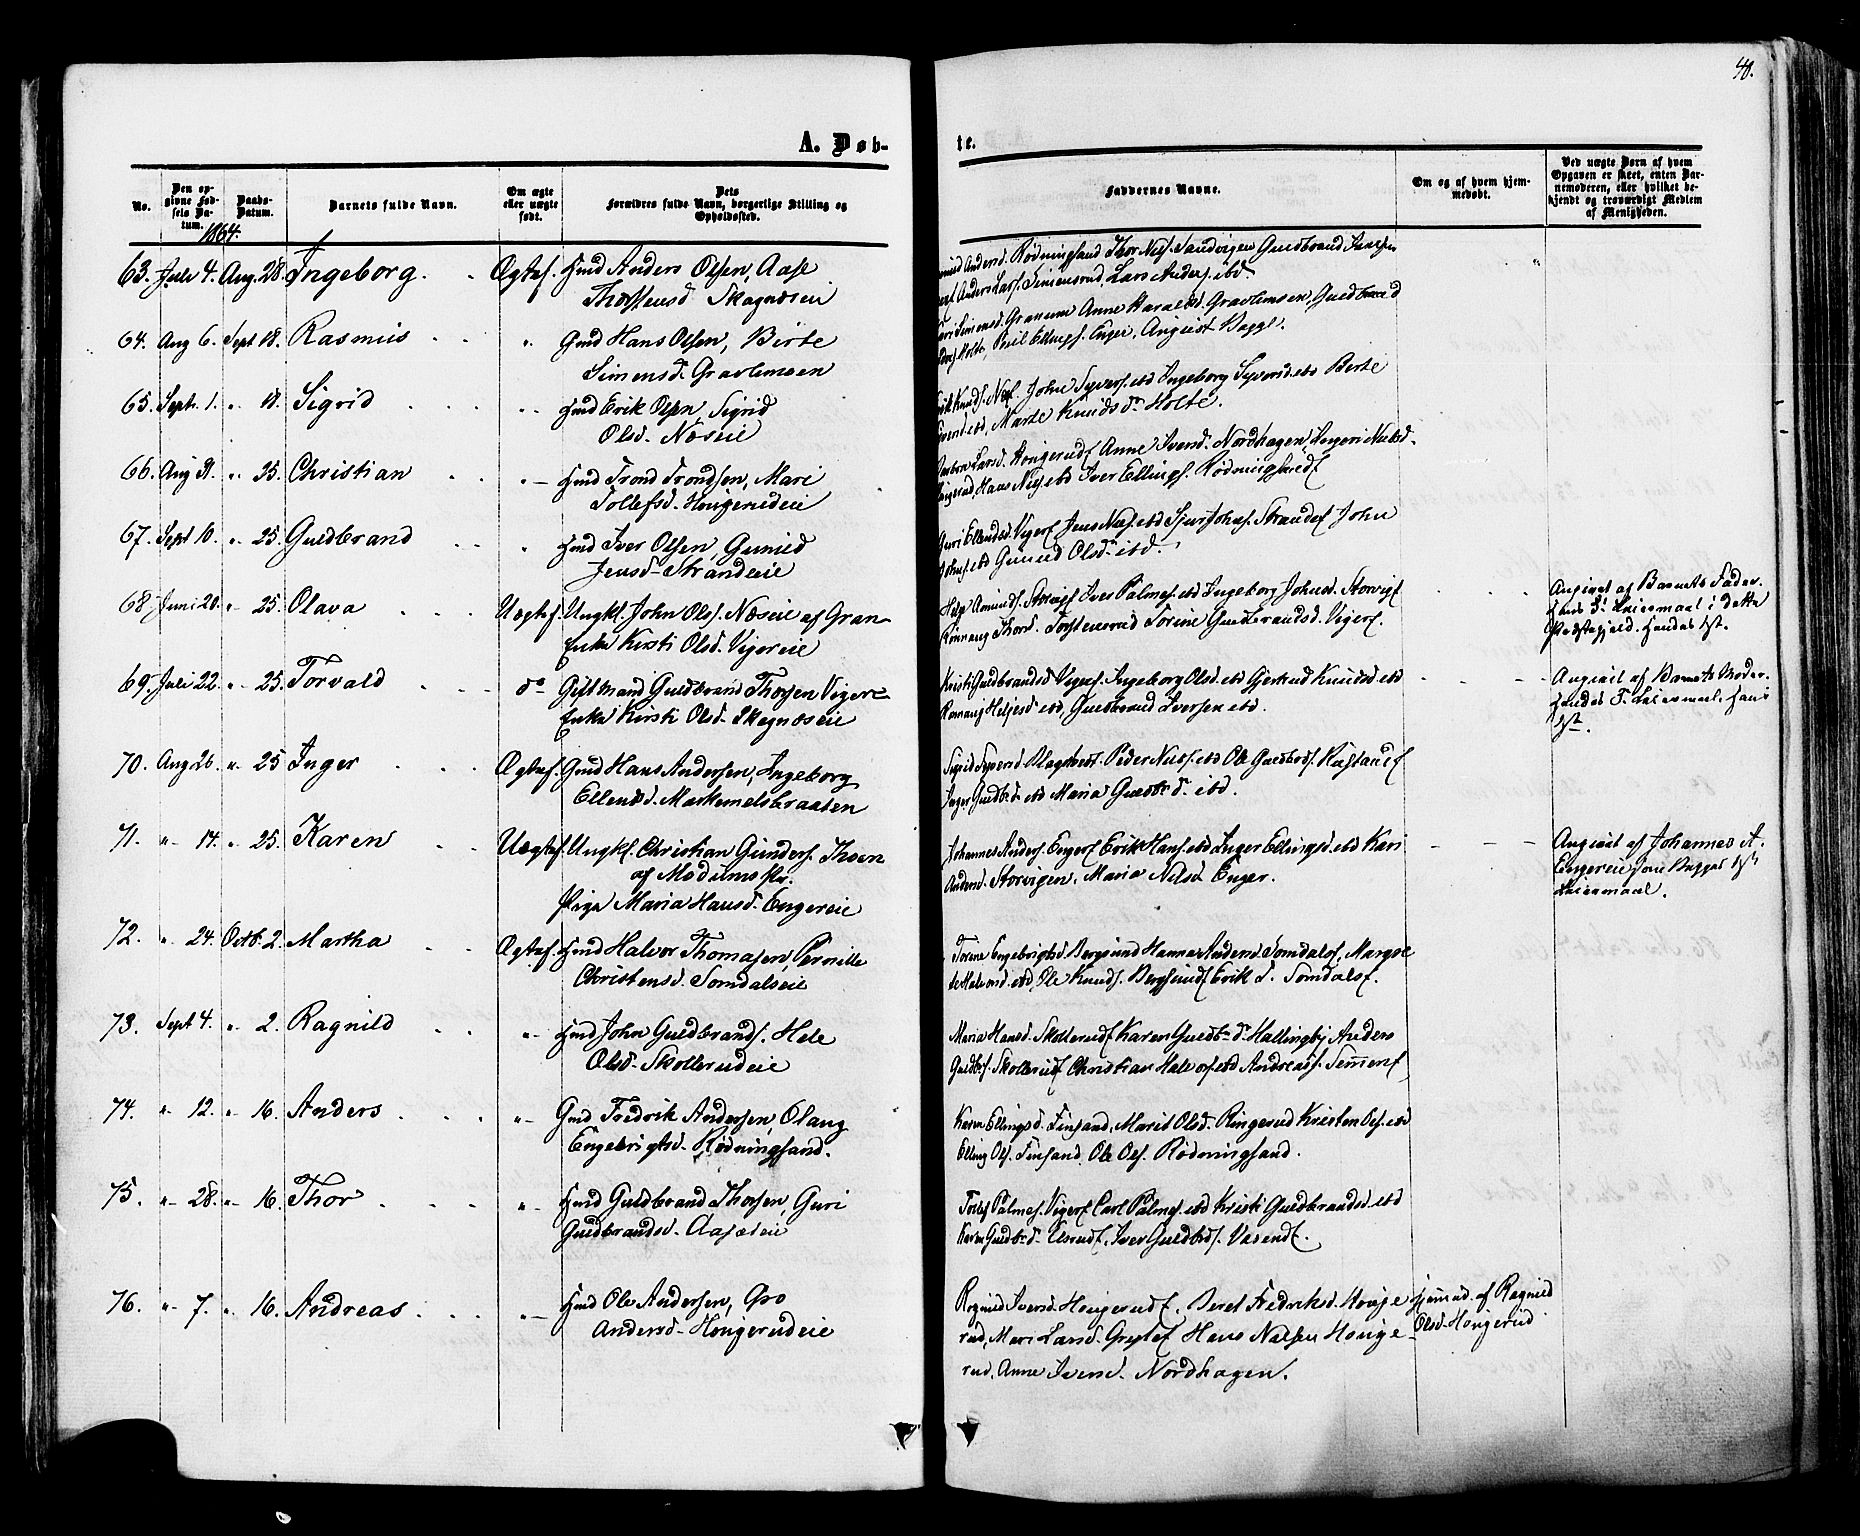 40.
A. Døb-
te.
No.
Den op-
givne Fød-
sels Da-
tum.
Daabs-
Datum.
Barnets fulde Navn.
Om ægte
eller uægte
født.
Dets
Forældres fulde Navn, borgerlige Stilling og
Opholdssted.
Faddernes Navne.
Om og af hvem hjem-
medøbt.
Ved uægte Børn af hvem
Opgaven er skeet, enten Bar-
nemoderen, eller hvilket be-
kjendt og troværdigt Medlem
af Menigheden.
1864.
63. Juli 4. Aug. 28. Ingeborg. Ægtef. Hmd Anders Olsen, Aase
Thorstensd Skagnæseie
Andersd. Rødningsand Thor Niels. Sandvigen Guldbrand
Anders Lars. Simensrud, Lars Anders. ibd.
64. Aug 6. Sept 18. Rasmus " Gmd Hans Olsen, Birte
Simensd. Gravlimoen
Simensd. Granum Anne Haralds. Gravlimoen, Guldbrand
Holte, Poul Ellings. Enger, August Bagge.
65. Sept. 1. " 18. Sigrid " Hmd Erik Olsen, Sigrid
Olsd. Næseie
Knuds. Næsf. John Syvers. ibd Ingeborg Syversd. ibd Berte
ibd, Marte Knudsdr Holte.
66. Aug 31. " 25. Christian " Hmd Trond Trondsen, Mari
Tollefsd. Hougerudeie
Larsd. Hougerudf Anne Iversd. Nordhagen Nielsd.
Hans Niels. ibd Iver Ellings. Rødningsandf
67. Sept 10. " 25. Guldbrand " Hmd Iver Olsen, Gunild
Jensd. Strandeie
Guri Ellendsd. Vigerf Jens Niels. ibd Sjur Johns. Strandef John
Johns. ibd Gunild Olsdr ibd.
68. Juni 20. " 25. Olava Uægtef. Ungkl. John Ols. Næseie af Gran
Enke Kirsti Olsd. Vigereie
Amunds. Storvigf Iver Palmes. ibd Ingeborg Johnsd. Storvigf
Rønnaug Thord. Torstensrud Torine Guldbrandsd. Vigerf.
Angivet af Barnets Fader.
Hans 3' Leiermaal i dette
Præstegjeld. Hendes 1ste.
69. Juli 22. " 25. Torvald do Gift Mand Guldbrand Thorsen Vigere
Enke Kirsti Olsd. Skagnæseie
Kristi Guldbrandsd Vigerf. Ingeborg Olsd. ibd Gjertrud Knudsd ibd
Rønnaug Heljesd ibd, Guldbrand Iversen ibd.
Angivet af Barnets Moder.
Hendes Leiermaal. Hans
1ste.
70. Aug 26. " 25 Inger Ægtef. Gmd Hans Andersen, Ingeborg
Ellendsd. Markemelsbraaten
Sigrid Syversd Peder Niels. ibd Ole Guldbrds.
Inger Guldbr.d. ibd Maria Guldbr.d. ibd.
71. " 14. " 25. Karen Uægtef. Ungkl. Christian Gunders. Thoen
af Modums Pr.
Pige Maria Hansd. Engereie
Johannes Anders. Engerf Erik Hans. ibd Inger Ellingsd. ibd Kari
Andersd. Storvigen. Maria Nilsd Enger.
Angivet af Johannes A.
Engereie 1ste
Leiermaal.
72. " 24. Octb. 2. Martha Ægtef. Hmd Halvor Thomasen, Pernille
Christensd. Somdalseie
Torene Engebrigtsd. Bergsund Hanna Andersd Somdalsf, Margre
te Halvorsd. ibd, Ole Knuds. Bergsundf Erik Somdalsf.
73. Sept 4. " 2. Ragnild " Hmd John Guldbrands. Hele
Olsd. Skollerudeie
Maria Hansd. Skollerudf Karen Guldbrdr Hallingby Anders
Guldbrs. Skollerudf Christian Halvors. ibd Andreas
74. " 12. " 16. Anders " Gmd Fredrik Andersen, Olaug
Engebrigtsd. Rødningsand.
Karen Ellingsd. Finsand, Marit Olsd. Ringerud Kristen Ols. ibd
Elling Ols. Finsand Ole Ols. Rødningsand.
75. " 28. " 16. Thor " Hmd Guldbrand Thorsen, Guri
Guldbrandsd. Aasædeie
Palmes. Vigerf Carl Palmes. ibd Kristi Guldbrandsd ibd
Karen Guldbrd. Elsrudf, Iver Guldbrds. Vasendf.
76. " 7. " 16. Andreas " Hmd Ole Andersen, Gro
Andersd. Hougerudeie
Ragnild Iversd. Hougerudf, Beret Fredriksd. Houge
rud, Mari Larsd. Hans Nielsen Houge
rud, Anne Iversd. Nordhagen.
Hjemmed. af Ragnild
Olsd. Hougerud